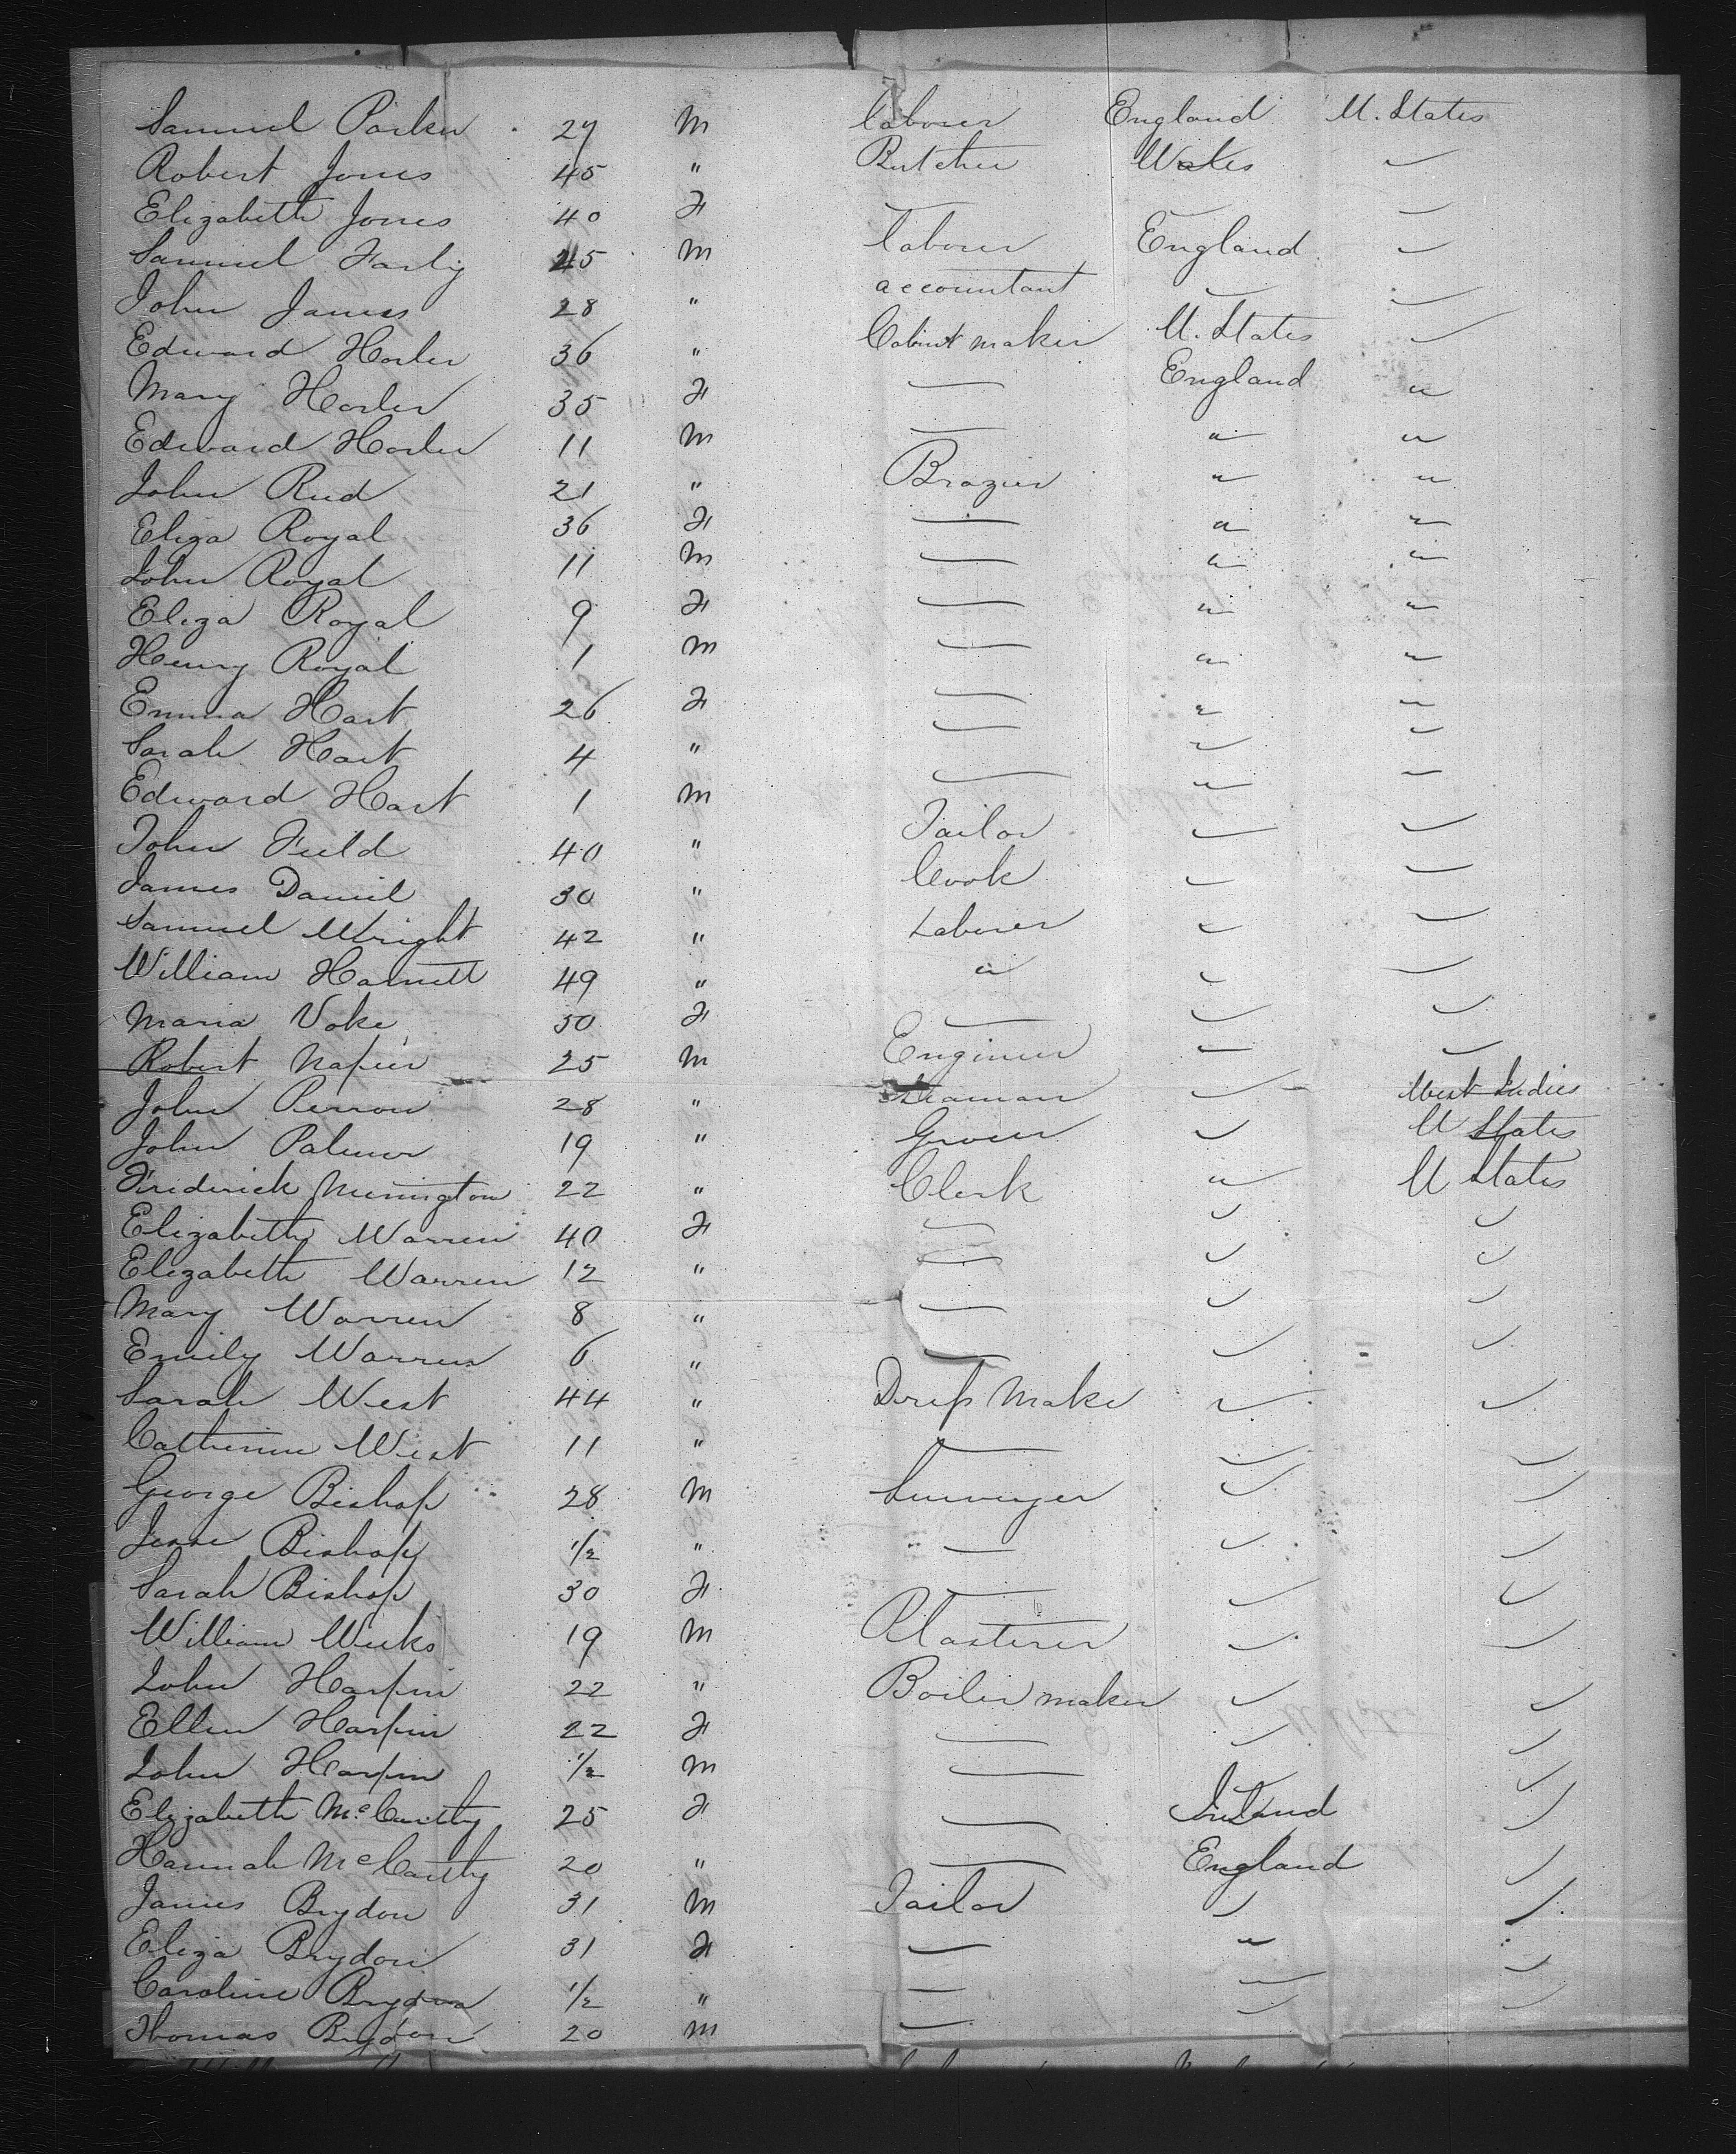 Samuel Parker 27 M Laborer England U. States
Robert Jones 45 " Butcher Wales "
Elizabeth Jones 40 F — — —
Samuel Farly 45 M Laborer England "
John James 28 " accountant " "
Edward Horler 36 " Cabinet maker U. States "
Mary Horler 35 F — England "
Edward Horler 11 M — " "
John Rud 21 " Brazier " "
Eliza Royal 36 F — " "
John Royal 11 M — " "
Eliza Royal 9 F — " "
Henry Royal 1 M — " "
Emma Hart 26 F — " "
Sarah Hart 4 " — " "
Edward Hart 1 M — " "
John Field 40 " Tailor " "
James Daniel 30 " Cook " "
Samuel Wright 42 " Laborer " "
William Harnett 49 " " " "
Maria Voke 50 F — " "
Robert Napier 25 M Engineer " "
John Perrow 28 " Seaman " West Indies
John Palmer 19 " Grocer " U States
Frederick 22 " Clerk " U States
Elizabeth Warren 40 F — " "
Elizabeth Warren 12 " — " "
Mary Warren 8 " — " "
Emily Warren 6 " — " "
Sarah West 44 " Dress Make " "
Catherine West 11 " — " "
George Bishop 28 M " "
Jesse Bishop 1/2 " — " "
Sarah Bishop 30 F — " "
William Weeks 19 M Plasterer " "
John Harpin 22 " Boiler maker " "
Ellen Harpin 22 F — " "
John Harpin 1/2 M — " "
Elizabeth McCarthy 25 F — Ireland "
Hannah McCarthy 20 " — England "
James Brydon 31 M Tailor " "
Eliza Brydon 31 F — " "
Caroline Brydon 1/2 " — " "
Thomas Brydon 20 M — " "